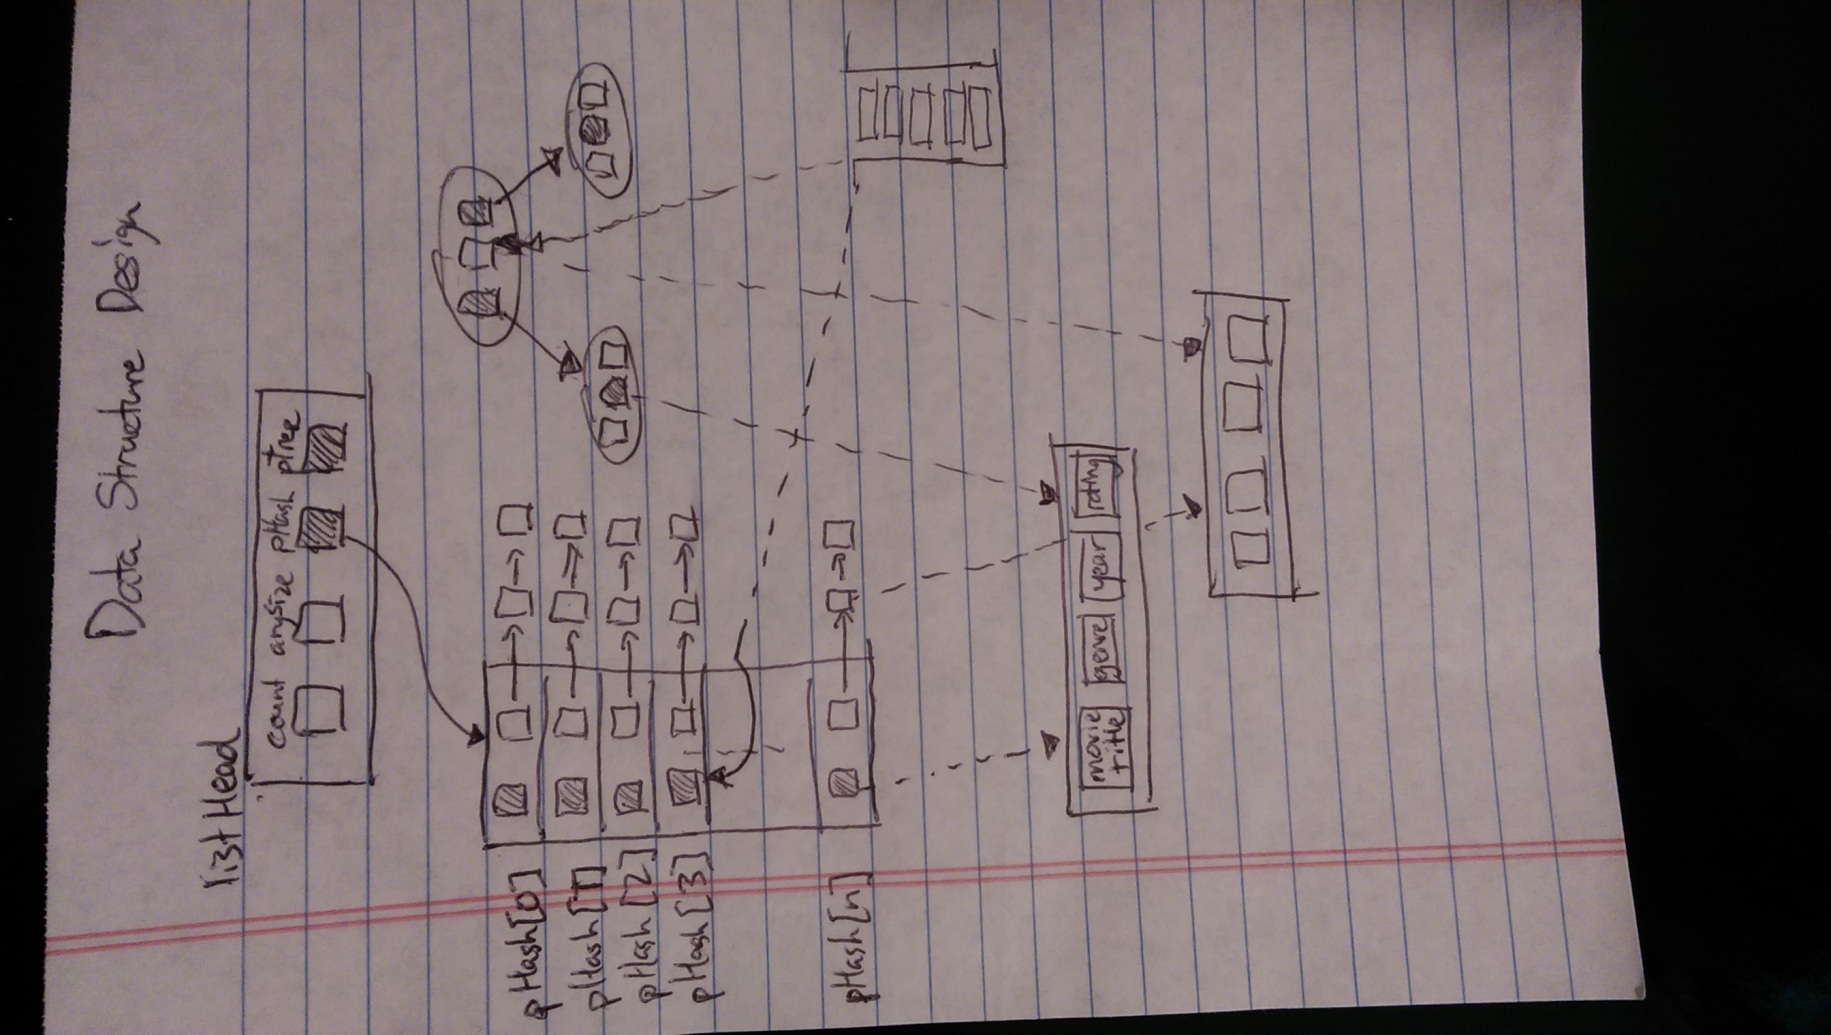 Data Structure Design
listHead
count arySize pHash pTree
pHash[0]
pHash[1]
pHash[2]
pHash[3]
pHash[n]
movie title genre year rating